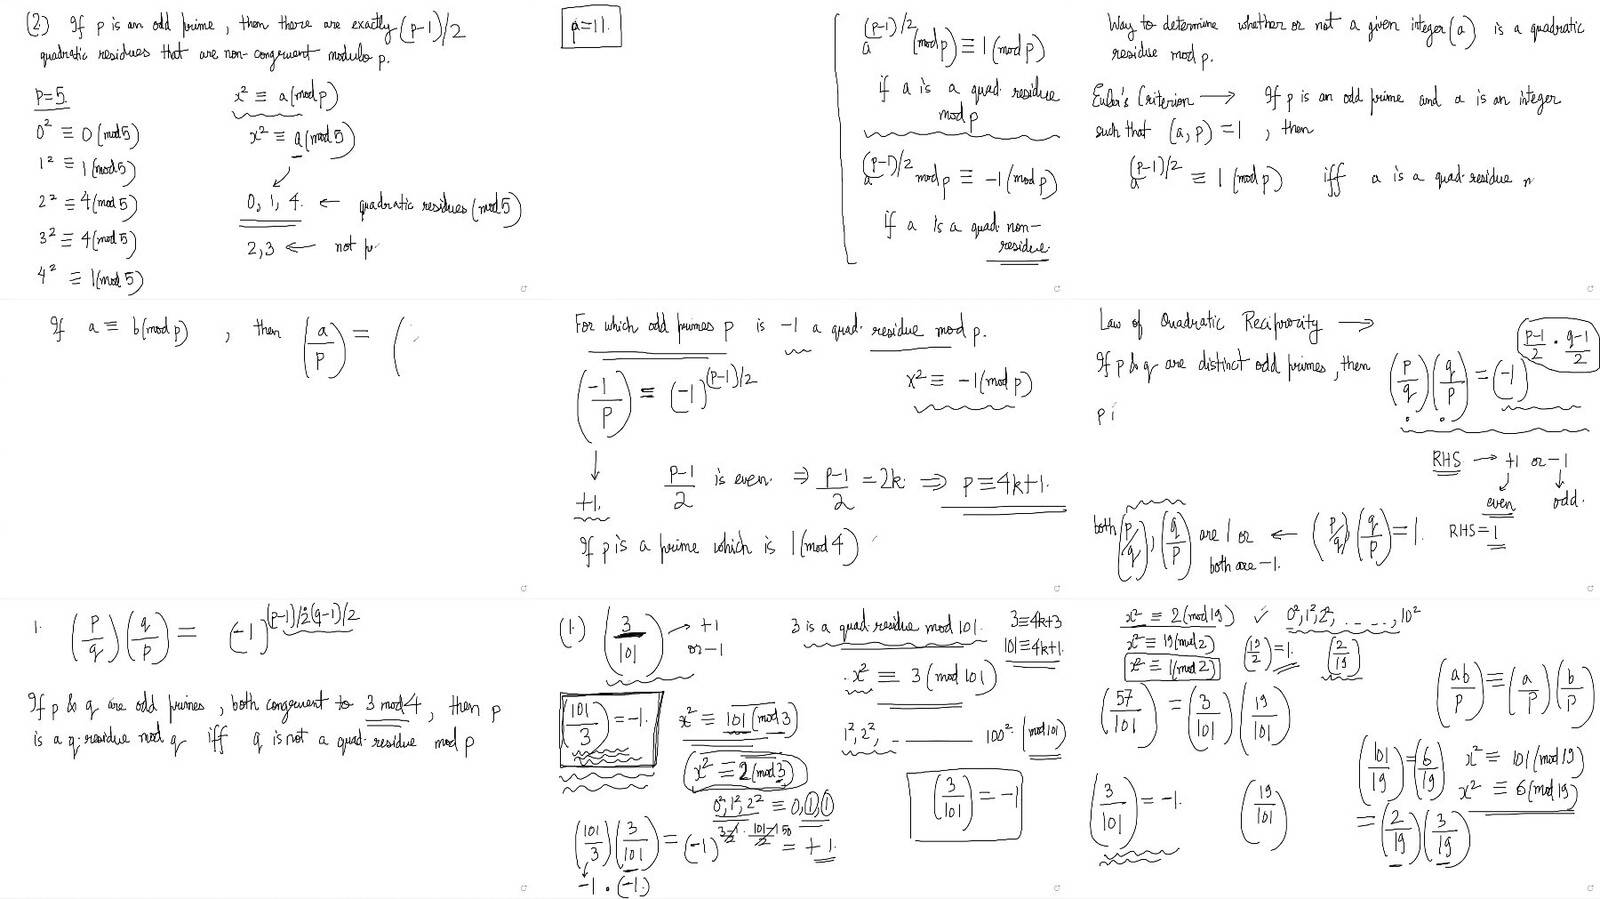 (2.) If p is an odd prime, then there are exactly (p-1)/2
quadratic residues that are non-congruent modulo p.
P=5.
0² ≡ 0(mod5)
1² ≡ 1(mod5)
2² ≡ 4(mod5)
3² ≡ 4(mod5)
4² ≡ 1(mod5)
x² ≡ a(mod p)
x² ≡ a(mod5)
0, 1, 4. ← quadratic residues (mod5)
2,3 ← not
p=11.
a^(p-1)/2 (mod p) ≡ 1(mod p)
if a is a quad. residue
mod p
a^(p-1)/2 mod p ≡ -1(mod p)
if a is a quad. non-
residue.
Way to determine whether or not a given integer(a) is a quadratic
residue mod p.
Euler's Criterion → If p is an odd prime and a is an integer
such that (a, p) = 1, then
a^(p-1)/2 ≡ 1 (mod p) iff a is a quad. residue
If a ≡ b(mod p), then (a/p) = (
For which odd primes p is -1 a quad. residue mod p.
(-1/p) = (-1)^(p-1)/2
x² ≡ -1(mod p)
+1.
p-1/2 is even. ⇒ p-1/2 = 2k. ⇒ p ≡ 4k+1.
If p is a prime which is 1(mod 4)
Law of Quadratic Reciprocity →
If p & q are distinct odd primes, then (p/q)(q/p) = (-1)^(p-1/2 · q-1/2)
p i
RHS → +1 or -1
even odd.
both (p/q), (q/p) are 1 or ← (p/q)(q/p) = 1. RHS = 1
both are -1.
1. (p/q)(q/p) = (-1)^(p-1)/2(q-1)/2
If p & q are odd primes, both congruent to 3 mod 4, then p
is a q. residue mod q iff q is not a quad. residue mod p
(1.) (3/101) → +1
or -1
3 is a quad. residue mod 101.
3≡4k+3
101≡4k+1.
x² ≡ 3 (mod 101)
(101/3) = -1.
x² ≡ 101 (mod 3)
x² ≡ 2(mod 3)
1², 2², ——— 100² (mod 101)
0², 1², 2² ≡ 0, 1, 1
(101/3)(3/101) = (-1)^(3-1/2 · 101-1/2 50) = +1.
-1 · (-1.)
(3/101) = -1
x² ≡ 2(mod 19) ✓ 0², 1², 2², - - - -, 10²
x² ≡ 19(mod 2) (19/2) = 1. (2/19)
x² ≡ 1(mod 2)
(57/101) = (3/101)(19/101)
(ab/p) ≡ (a/p)(b/p)
(3/101) = -1. (19/101)
(101/19) = (6/19) x² ≡ 101(mod 19)
x² ≡ 6(mod 19)
= (2/19)(3/19)